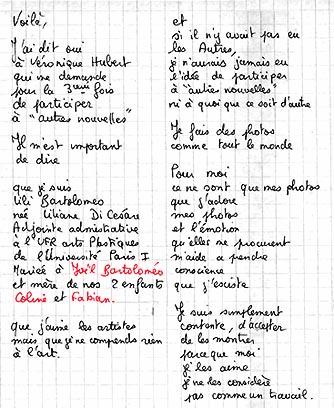 Voilà,
J'ai dit oui
à Véronique Hubert
qui me demande
pour la 3ème fois
de participer
à "autres nouvelles"
Il m'est important
de dire
que je suis
Lili Bartolomeo
née Liliane Di Cesare
Adjointe administrative
à l'UFR arts Plastiques
de l'Université Paris I
Mariée à Joël Bartoloméo
et mère de nos 2 enfants
Coline et Fabian.
que j'aime les artistes
mais que je ne comprends rien
à l'art.
et
si il n'y avait pas eu
les Autres,
je n'aurais jamais eu
l'idée de participer
à "autres nouvelles"
ni à quoi que ce soit d'autre
Je fais des photos
comme tout le monde
Pour moi
ce ne sont que mes photos
que j'adore
mes photos
et l'émotion
qu'elles me procurent
m'aide à prendre
conscience
que j'existe
Je suis simplement
contente, d'accepter
de les montrer
parce que moi
je les aime
je ne les considère
pas comme un travail.